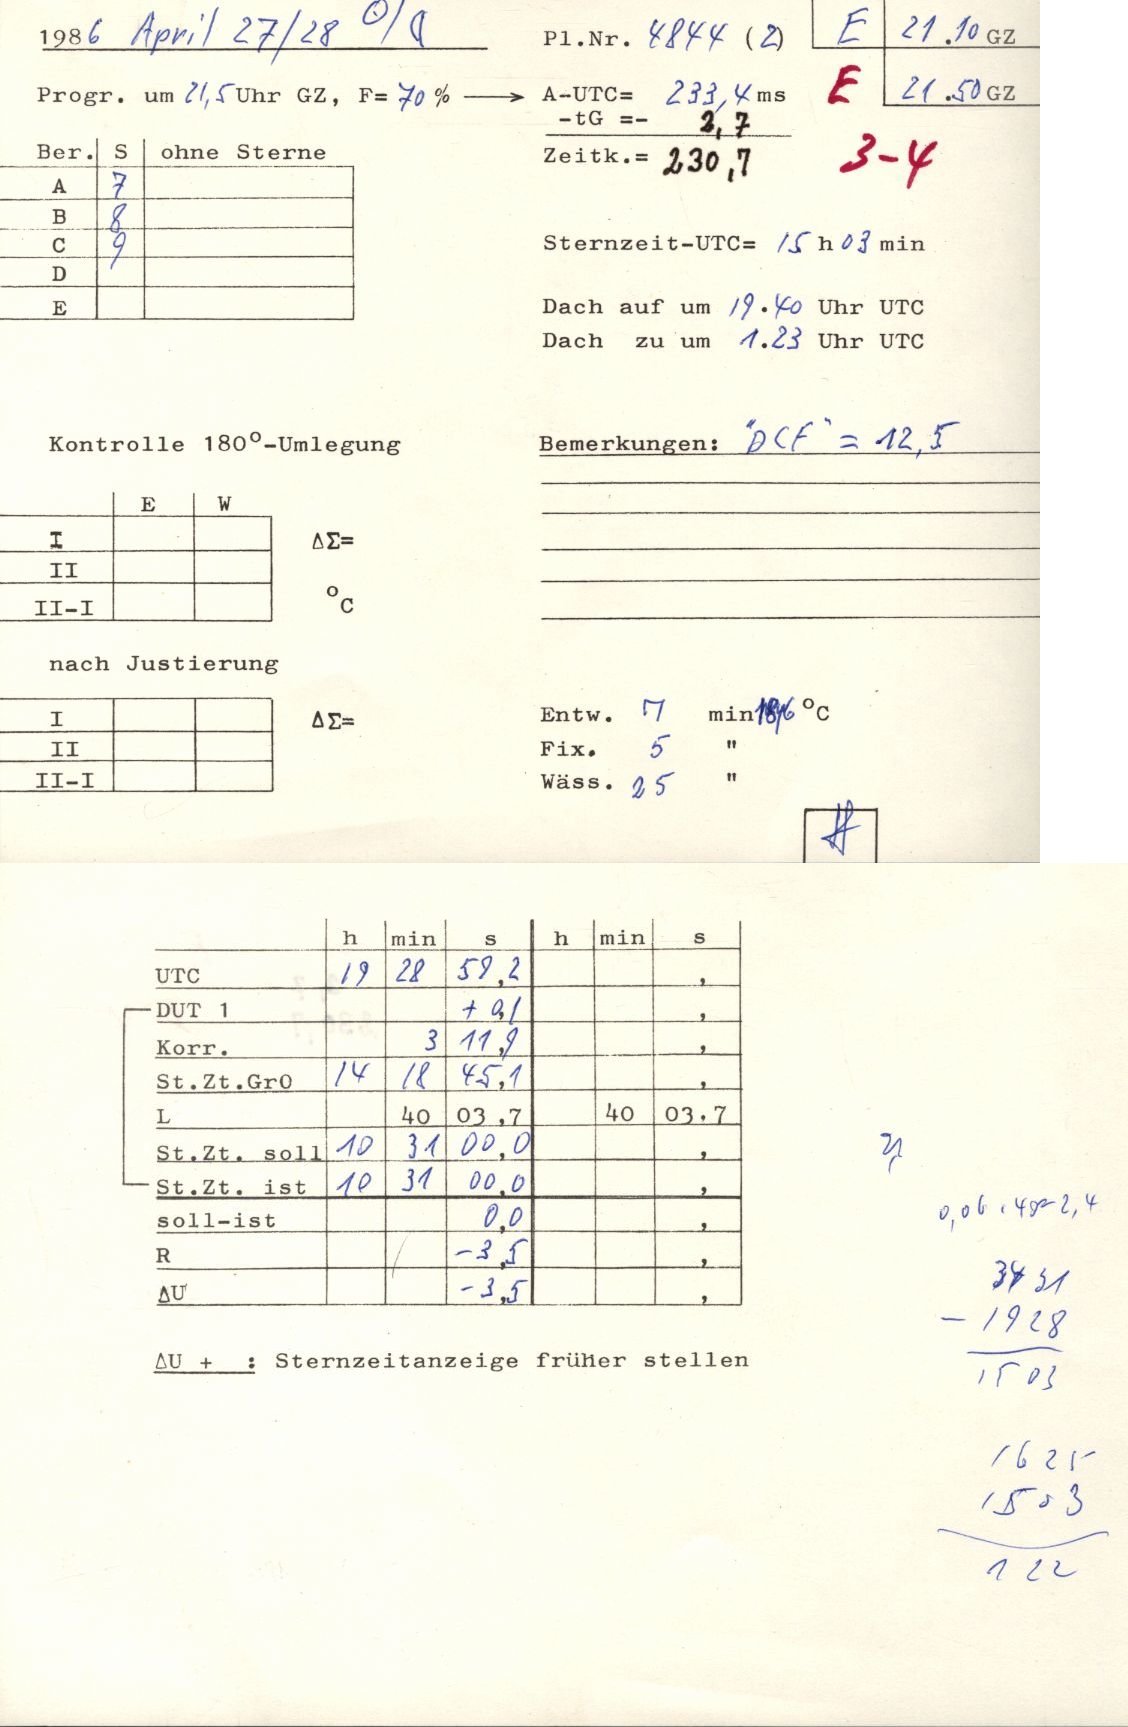 1986 April 27/28 ☉/☾ Pl.Nr. 4844 (2) E 21.10 GZ
Progr. um 21,5 Uhr GZ, F= 70 % → A-UTC= 233,4 ms E 21.50 GZ
-tG =- 2,7
Ber. S ohne Sterne Zeitk.= 230,7 3-4
A 7
B 8
C 9 Sternzeit-UTC= 15 h 03 min
D
E Dach auf um 19.40 Uhr UTC
Dach zu um 1.23 Uhr UTC
Kontrolle 180°-Umlegung Bemerkungen: "DCF" = 12,5
E W
I ΔΣ=
II
II-I °C
nach Justierung
I ΔΣ= Entw. 7 min °C
II Fix. 5 "
II-I Wäss. 25 "
h min s h min s
UTC 19 28 59,2 ,
DUT 1 + 0,1 ,
Korr. 3 11,9 ,
St.Zt.Gr0 14 18 45,1 ,
L 40 03,7 40 03.7
St.Zt. soll 10 31 00,0 ,
St.Zt. ist 10 31 00,0 ,
soll-ist 0,0 ,
R -3,5 ,
ΔU -3,5 ,
0,06 · 40 = 2,4
3431
- 1928
1503
1625
1503
122
ΔU + : Sternzeitanzeige früher stellen